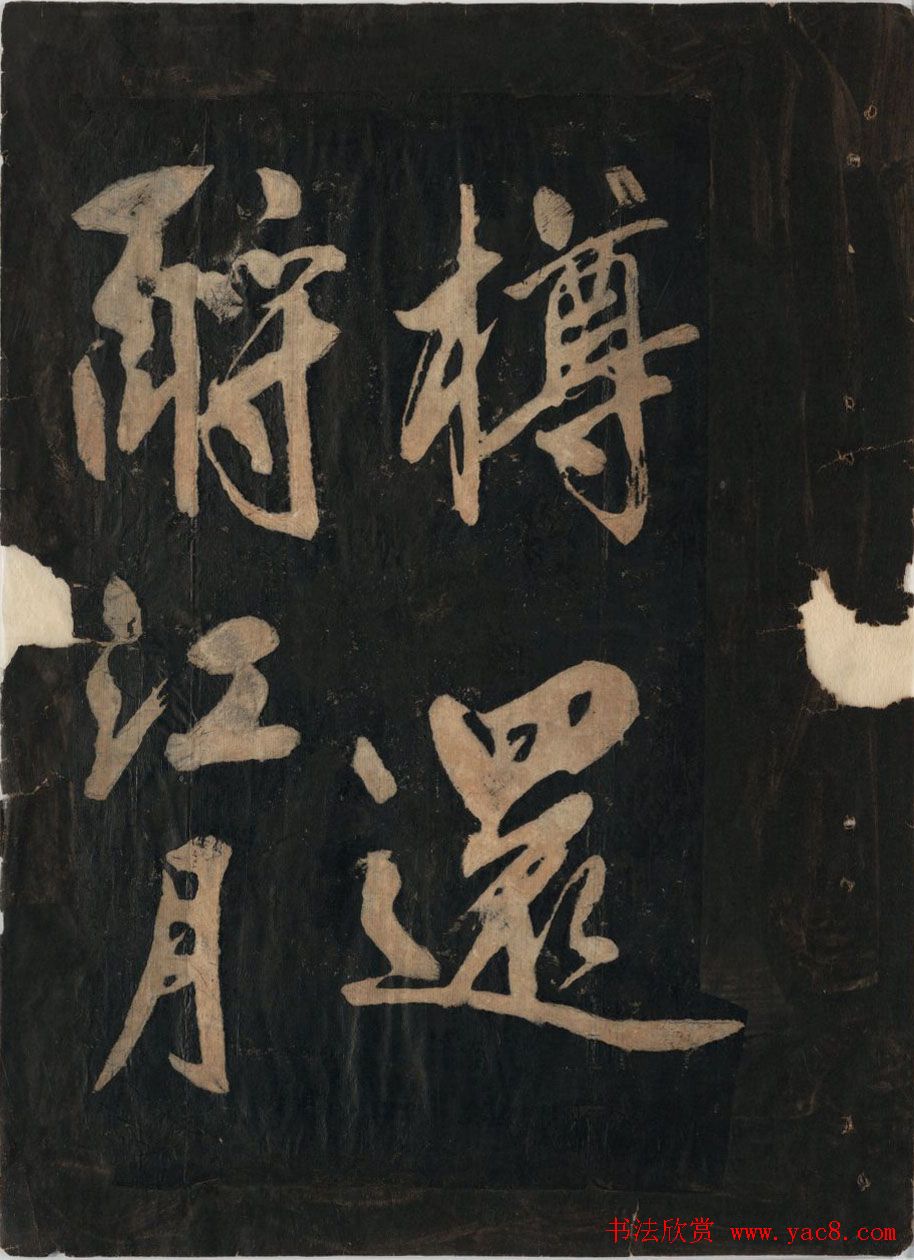 樽還
酹江月
书法欣赏 www.yac8.com